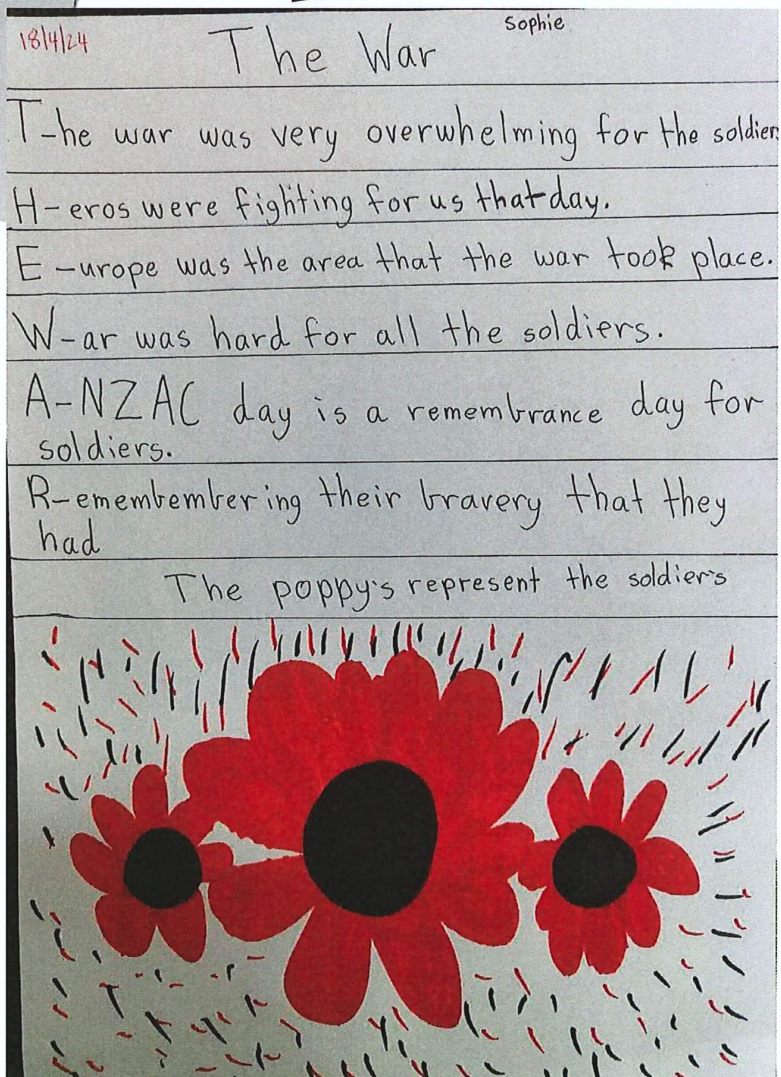 Sophie
18/4/24
The War
T-he war was very overwhelming for the soldier
H-eros were fighting for us that day.
E-urope was the area that the war took place.
W-ar was hard for all the soldiers.
A-NZAC day is a remembrance day for
soldiers.
R-emembembering their bravery that they
had
The poppy's represent the soldier's